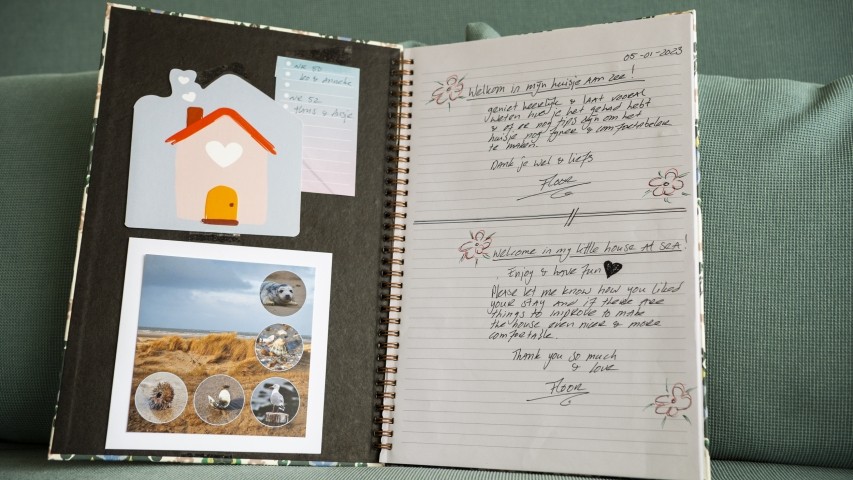 we 50
we 52
05-01-2023
Welkom in mijn huisje aan zee!
geniet heerlijk & laat vooral
weten hoe je het gehad hebt
& of er nog tips zijn om het
huisje nog fijner & comfortabeler
te maken.
Dank je wel & liefs
Floor
Welcome in my little house at sea!
Enjoy & have fun
Please let me know how you liked
your stay and if there are
things to improve to make
the house even nicer & more
comfortable.
Thank you so much
& love
Floor